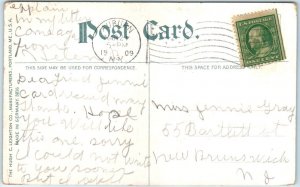 explain
in my let
Post Card.
19
09
N.Y.
THIS SIDE MAY BE USED FOR CORRESPONDENCE.
THIS SPACE FOR ADDRESS
THE HUGH C. LEIGHTON CO., MANUFACTURERS, PORTLAND, ME., U.S.A.
MADE IN GERMANY
Dear friend Jennie
Card received many
thanks. Hope
you will like
this one. Sorry
I could not write
to you sooner
Miss Jennie Gray
55 Bartlett st
New Brunswick
N J